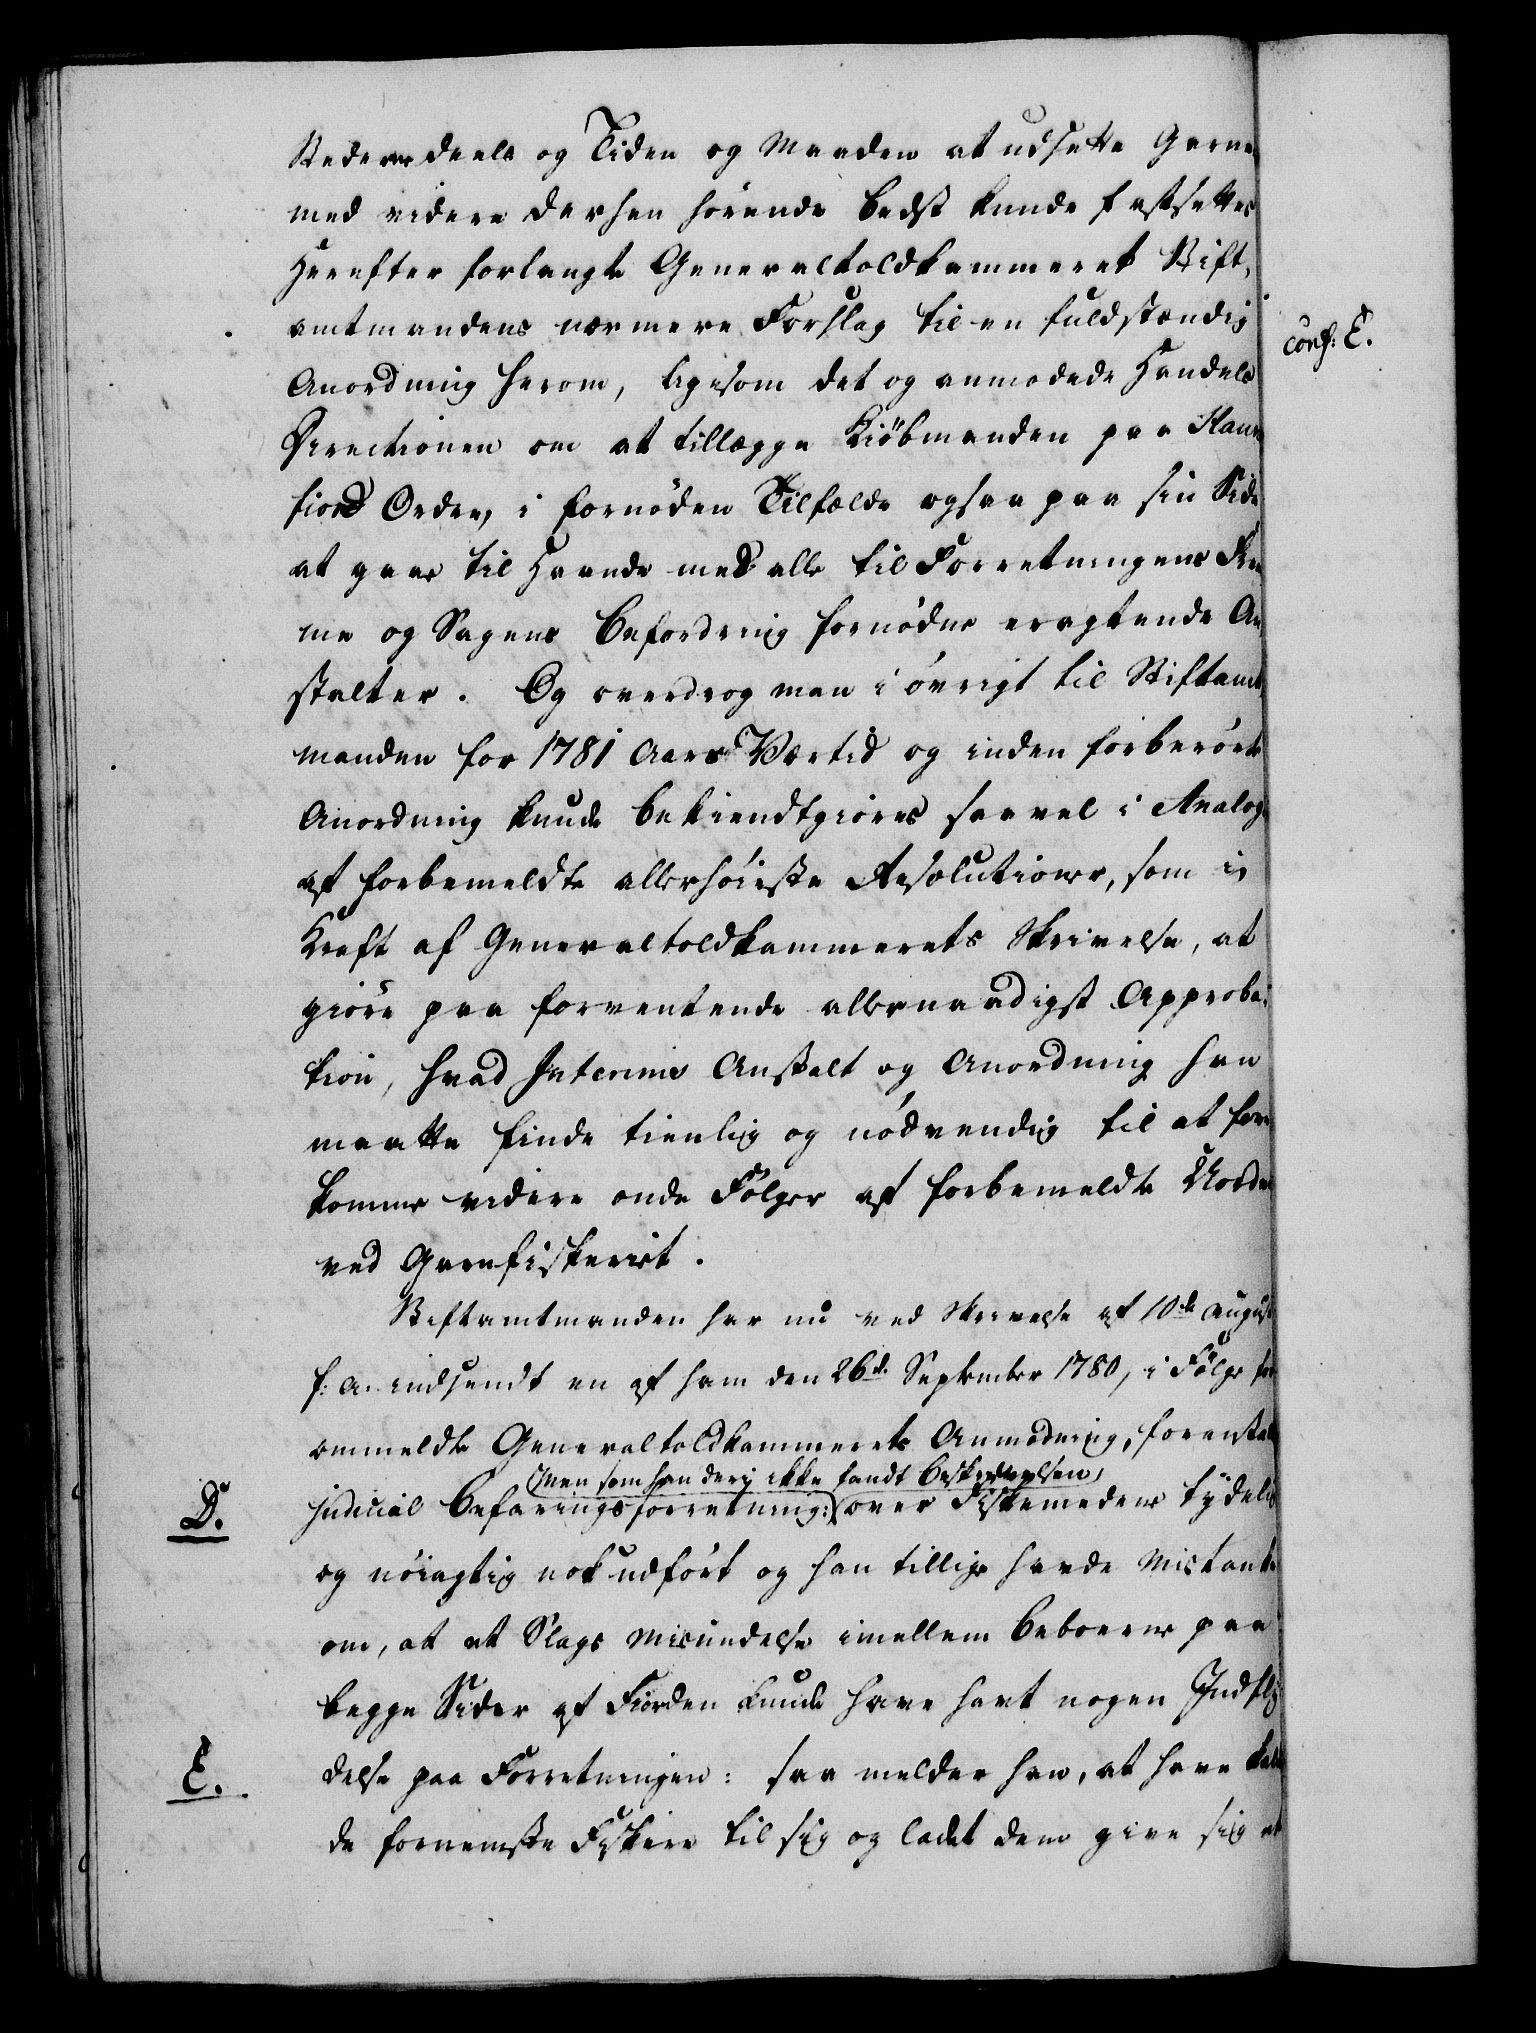 Stederne deels og Tiden og Maaden at udsætte Garnen
med videre derhen hörende bedst kunde fastsættes
Herefter forlangte Generaltoldkammeret Stift,
amtmandens nærmere Forslag til en fuldstændig
conf: E.
Anordning herom, ligesom det og anmodede Handels
Directionen om at tillægge Kiöbmanden paa Havne
fiord Ordre, i fornöden Tilfælde ogsaa paa sin Side
at gaae til Haande med alle til Forretningens Frem
me og Sagens Befordring fornödne eragtende An
stalter. Og overdrog man i övrigt til Stiftamt
manden for 1781 Aars Værtid og inden forberörte
Anordning kunde bekiendtgiöres saavel i Analog.
af forbemeldte allerhöieste Resolutioner, som i
Kraft af Generaltoldkammerets Skrivelse, at
giöre paa forventende allernaadigst Approba,
tion, hvad Interims Anstalt og Anordning han
maatte finde tienlig og nödvendig til at fore
komme videre onde Fölger af forbemeldte Uorden
ved Garnfiskeriet.
Stiftamtmanden har nu ved Skrivelse af 10de August
f: A. indsendt en af ham den 26de September 1780, i Fölge for
ommeldte Generaltoldkammerets Anmodning, foranstaltet
(men som han deri ikke fandt Beskrivelsen
D.
judicial Befaringsforretning: over Fiskemedene tydelig
og nöiagtig nok udfört og han tillige havde Mistanke
om, at et Slags Misundelse imellem Beboerne paa
begge Sider af Fiorden kunde have havt nogen Indfly
E.
delse paa Forretningen: saa melder han, at have kaldt
de fornemste Fiskere til sig og ladet dem give sig et